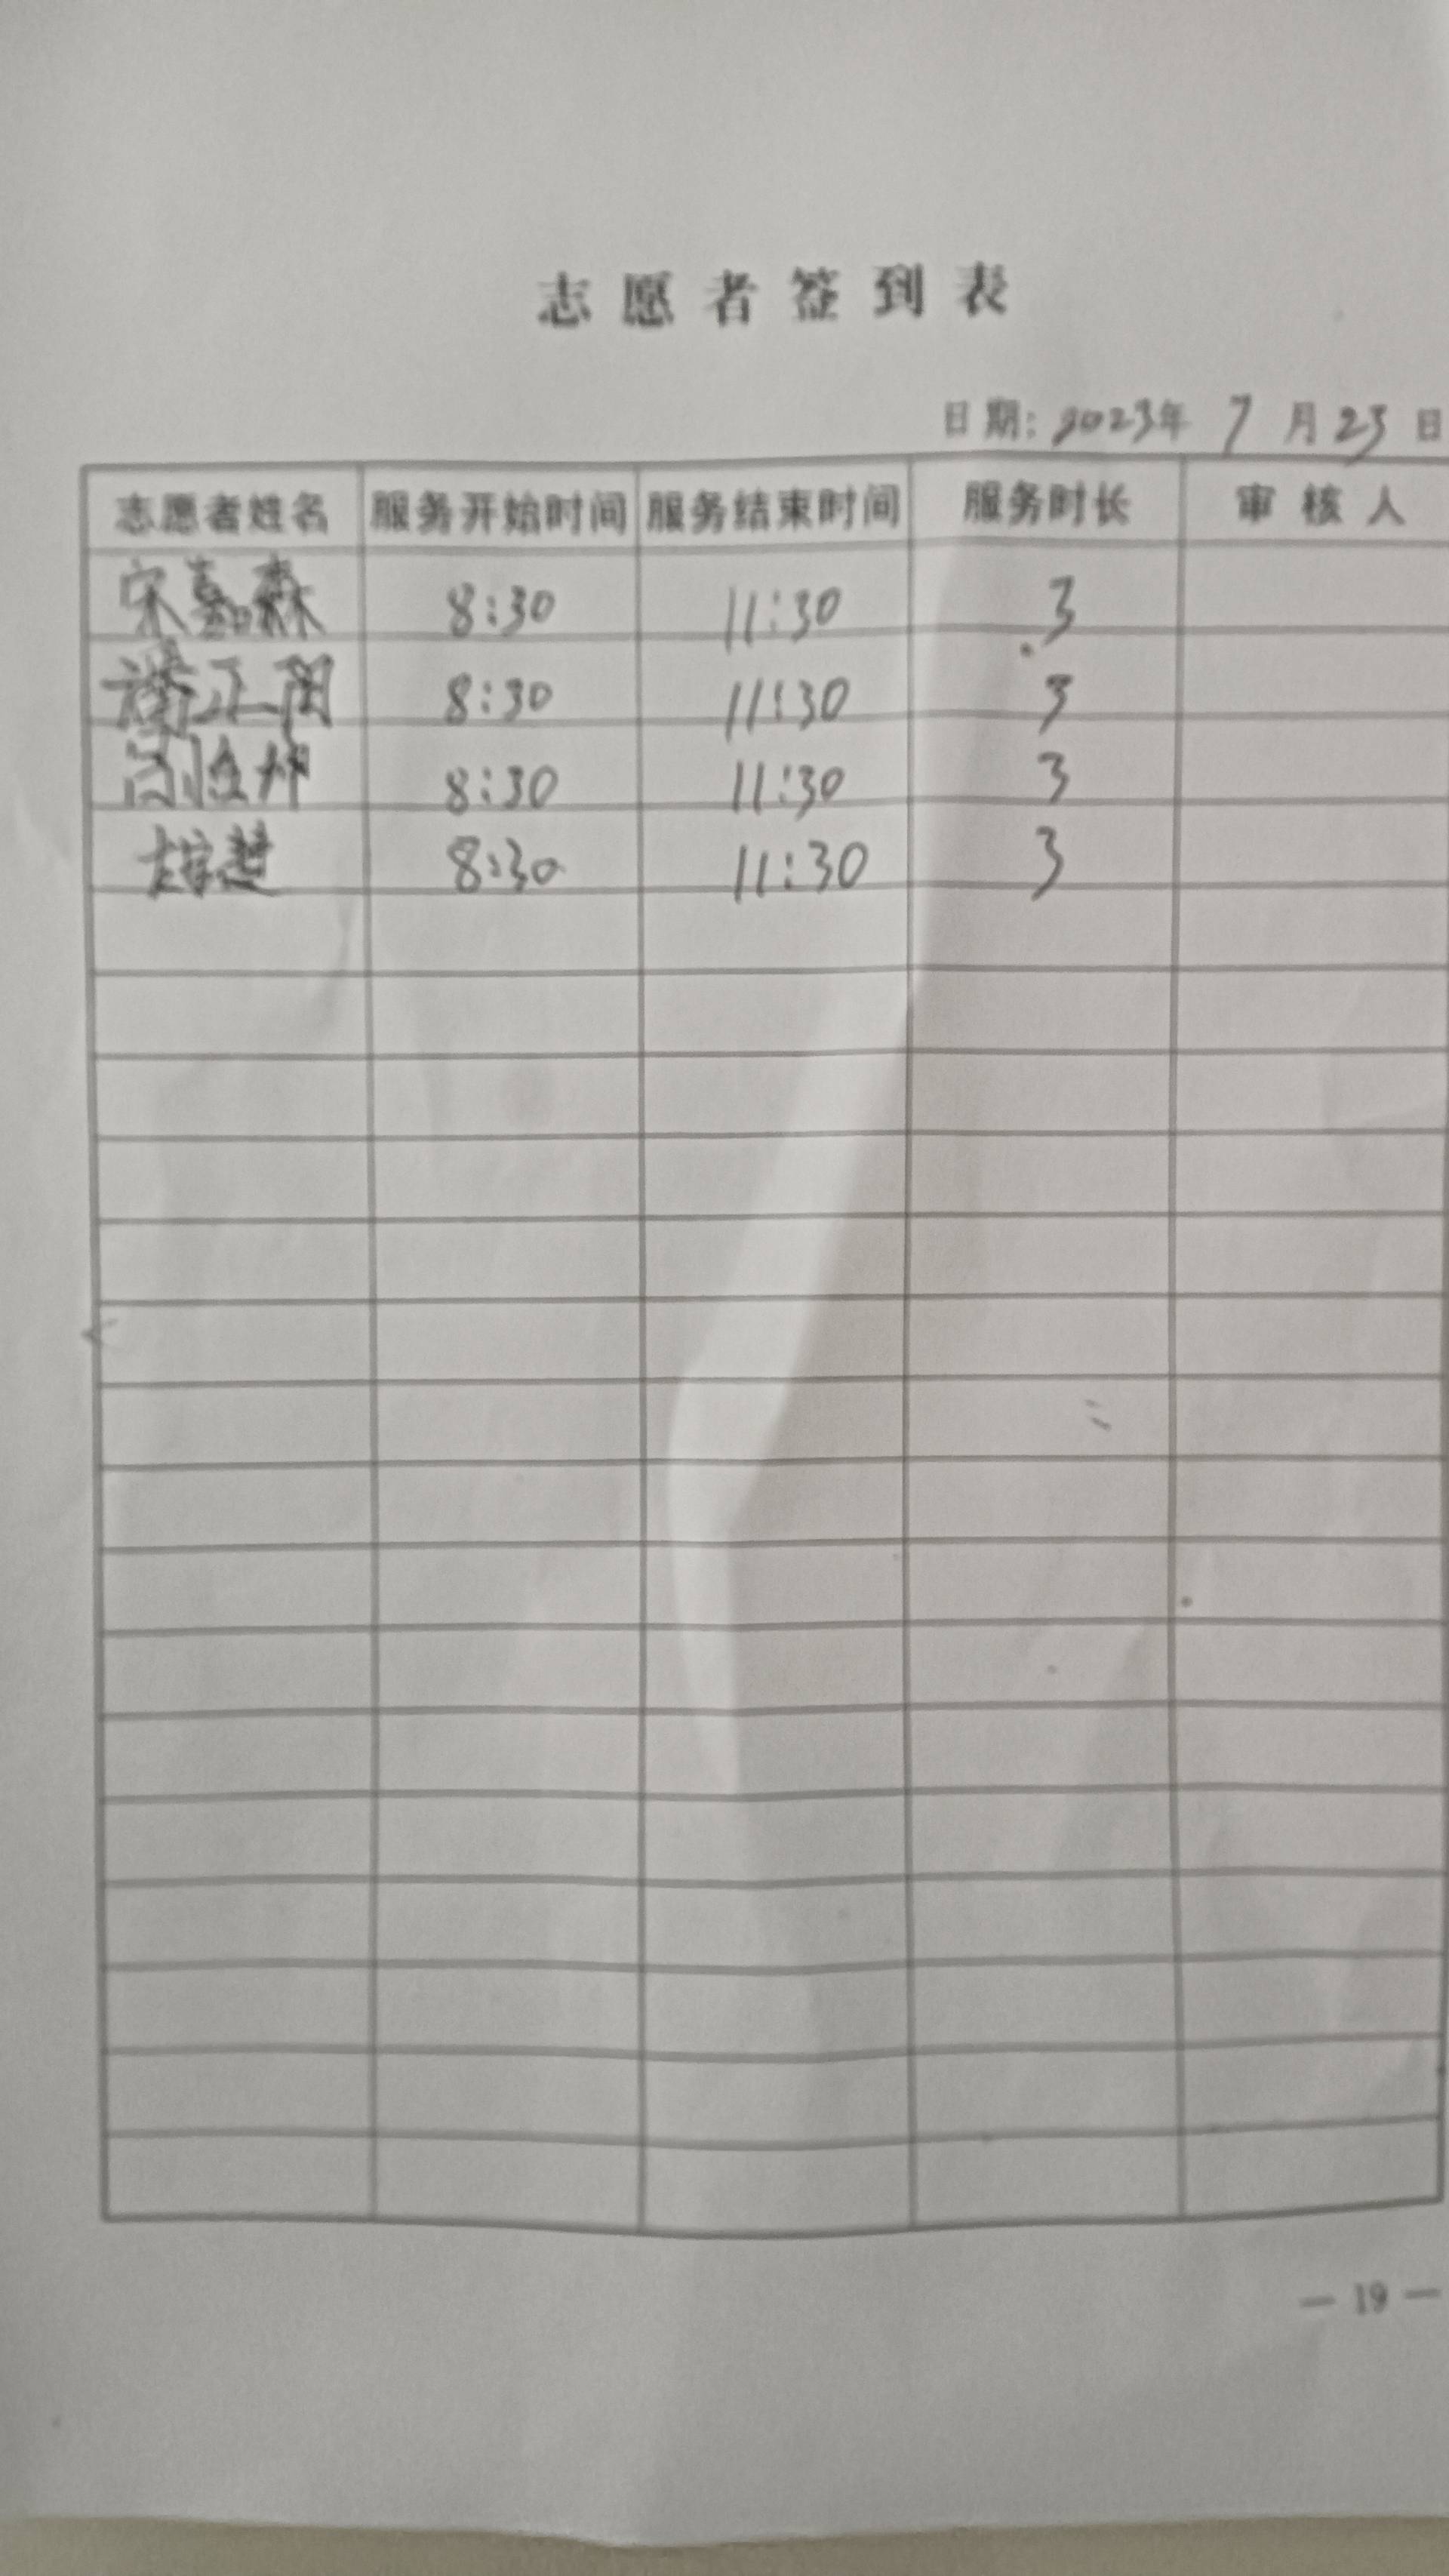 志愿者签到表
日期：2023年 7月23日
志愿者姓名 服务开始时间 服务结束时间 服务时长 审核人
宋嘉森 8:30 11:30 3
正阁 8:30 11:30 3
8:30 11:30 3
8:30 11:30 3
— 19 —